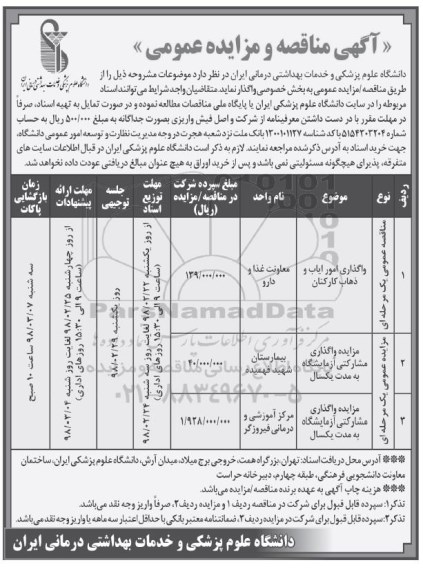 « آگهی مناقصه و مزایده عمومی »
دانشگاه علوم پزشکی و خدمات بهداشتی درمانی ایران
دانشگاه علوم پزشکی و خدمات بهداشتی درمانی ایران در نظر دارد موضوعات مشروحه ذیل را از
طریق مناقصه/مزایده عمومی به بخش خصوصی واگذار نماید. متقاضیان واجد شرایط می‌توانند اسناد
مربوطه را در سایت دانشگاه علوم پزشکی ایران یا پایگاه ملی مناقصات مطالعه نموده و در صورت تمایل به تهیه اسناد، صرفاً
در مهلت مقرر با در دست داشتن معرفینامه از شرکت و اصل فیش واریزی بصورت جداگانه به مبلغ ۵۰۰/۰۰۰ ریال به حساب
شماره ۵۱۵۴۲۰۲۲۰۴ با کد شناسه ۱۲۰۰۱۰۱۱۲۷ بانک ملت نزد شعبه هجرت در وجه مدیریت نظارت و توسعه امور عمومی دانشگاه،
جهت خرید اسناد به آدرس ذکر شده مراجعه نمایند. لازم به ذکر است دانشگاه علوم پزشکی ایران در قبال اطلاعات سایت های
متفرقه، پذیرای هیچگونه مسئولیتی نمی باشد و پس از خرید اوراق به هیچ عنوان مبالغ دریافتی عودت داده نخواهد شد.
ردیف | نوع | موضوع | نام واحد | مبلغ سپرده شرکت در مناقصه/مزایده (ریال) | مهلت توزیع اسناد | جلسه توجیهی | مهلت ارائه پیشنهادات | زمان بازگشایی پاکات
۱ | مناقصه عمومی یک مرحله ای | واگذاری امور ایاب و ذهاب کارکنان | معاونت غذا و دارو | ۱۳۹/۰۰۰/۰۰۰
۲ | مزایده عمومی یک مرحله ای | مزایده واگذاری مشارکتی آزمایشگاه به مدت یکسال | بیمارستان شهید فهمیده | ۴۰/۰۰۰/۰۰۰
۳ | مزایده واگذاری مشارکتی آزمایشگاه به مدت یکسال | مرکز آموزشی و درمانی فیروزگر | ۱/۹۲۸/۰۰۰/۰۰۰
از روز یکشنبه ۹۸/۰۲/۲۲ لغایت روز سه شنبه ۹۸/۰۲/۲۴ (ساعت ۹ الی ۱۵:۳۰ روزهای اداری)
روز یکشنبه ۹۸/۰۲/۲۹
از روز چهارشنبه ۹۸/۰۲/۲۵ لغایت روز شنبه ۹۸/۰۳/۰۴ (ساعت ۹ الی ۱۵:۳۰ روزهای اداری)
سه شنبه ۹۸/۰۳/۰۷ ساعت ۱۰ صبح
ParsNamadData
۰۲۱-۸۸۳۴۹۶۷۰-۵
*** آدرس محل دریافت اسناد: تهران، بزرگراه همت، خروجی برج میلاد، میدان آرش، دانشگاه علوم پزشکی ایران، ساختمان
معاونت دانشجویی فرهنگی، طبقه چهارم، دبیرخانه حراست
*** هزینه چاپ آگهی به عهده برنده مناقصه/مزایده می‌باشد.
تذکر۱: سپرده قابل قبول برای شرکت در مناقصه ردیف ۱ و مزایده ردیف۲، صرفاً واریز وجه نقد می‌باشد.
تذکر۲: سپرده قابل قبول برای شرکت در مزایده ردیف۳، ضمانتنامه معتبر بانکی با حداقل اعتبار سه ماهه یا واریز وجه نقد می‌باشد.
دانشگاه علوم پزشکی و خدمات بهداشتی درمانی ایران